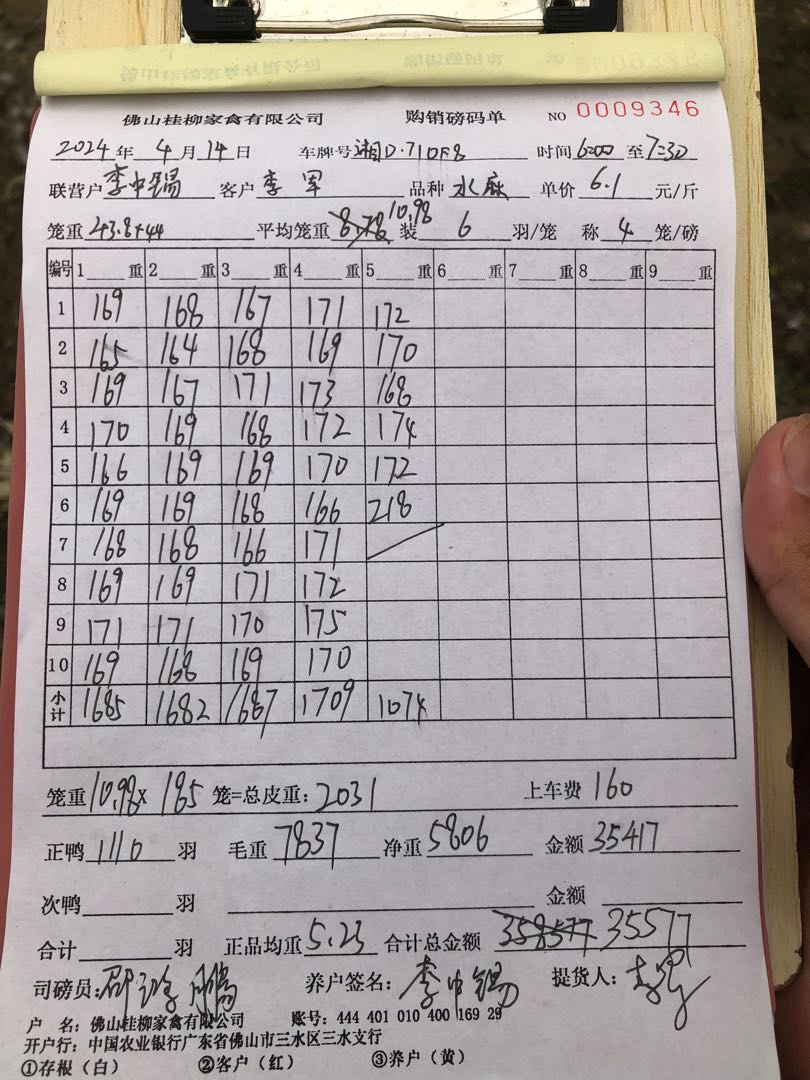 佛山桂柳家禽有限公司 购销磅码单 NO 0009346
2024年 4月 14日 车牌号 湘D·710F8 时间 6:00 至 7:30
联营户 李中锡 客户 李军 品种 水麻 单价 6.1 元/斤
笼重 43.8+44 平均笼重 10.98 装 6 羽/笼 称 4 笼/磅
编号 1 重 2 重 3 重 4 重 5 重 6 重 7 重 8 重 9 重
1 169 168 167 171 172
2 165 164 168 169 170
3 169 167 171 173 168
4 170 169 168 172 174
5 166 169 169 170 172
6 169 169 168 166 218
7 168 168 166 171
8 169 169 171 172
9 171 171 170 175
10 169 168 169 170
小计 1685 1682 1687 1709 1074
笼重 10.98 × 185 笼=总皮重: 2031 上车费 160
正鸭 1110 羽 毛重 7837 净重 5806 金额 35417
次鸭 羽 金额
合计 羽 正品均重 5.23 合计总金额 358577 35577
司磅员: 养户签名: 李中锡 提货人:
户 名: 佛山桂柳家禽有限公司 账号: 444 401 010 400 169 29
开户行: 中国农业银行广东省佛山市三水区三水支行
①存根(白) ②客户(红) ③养户(黄)